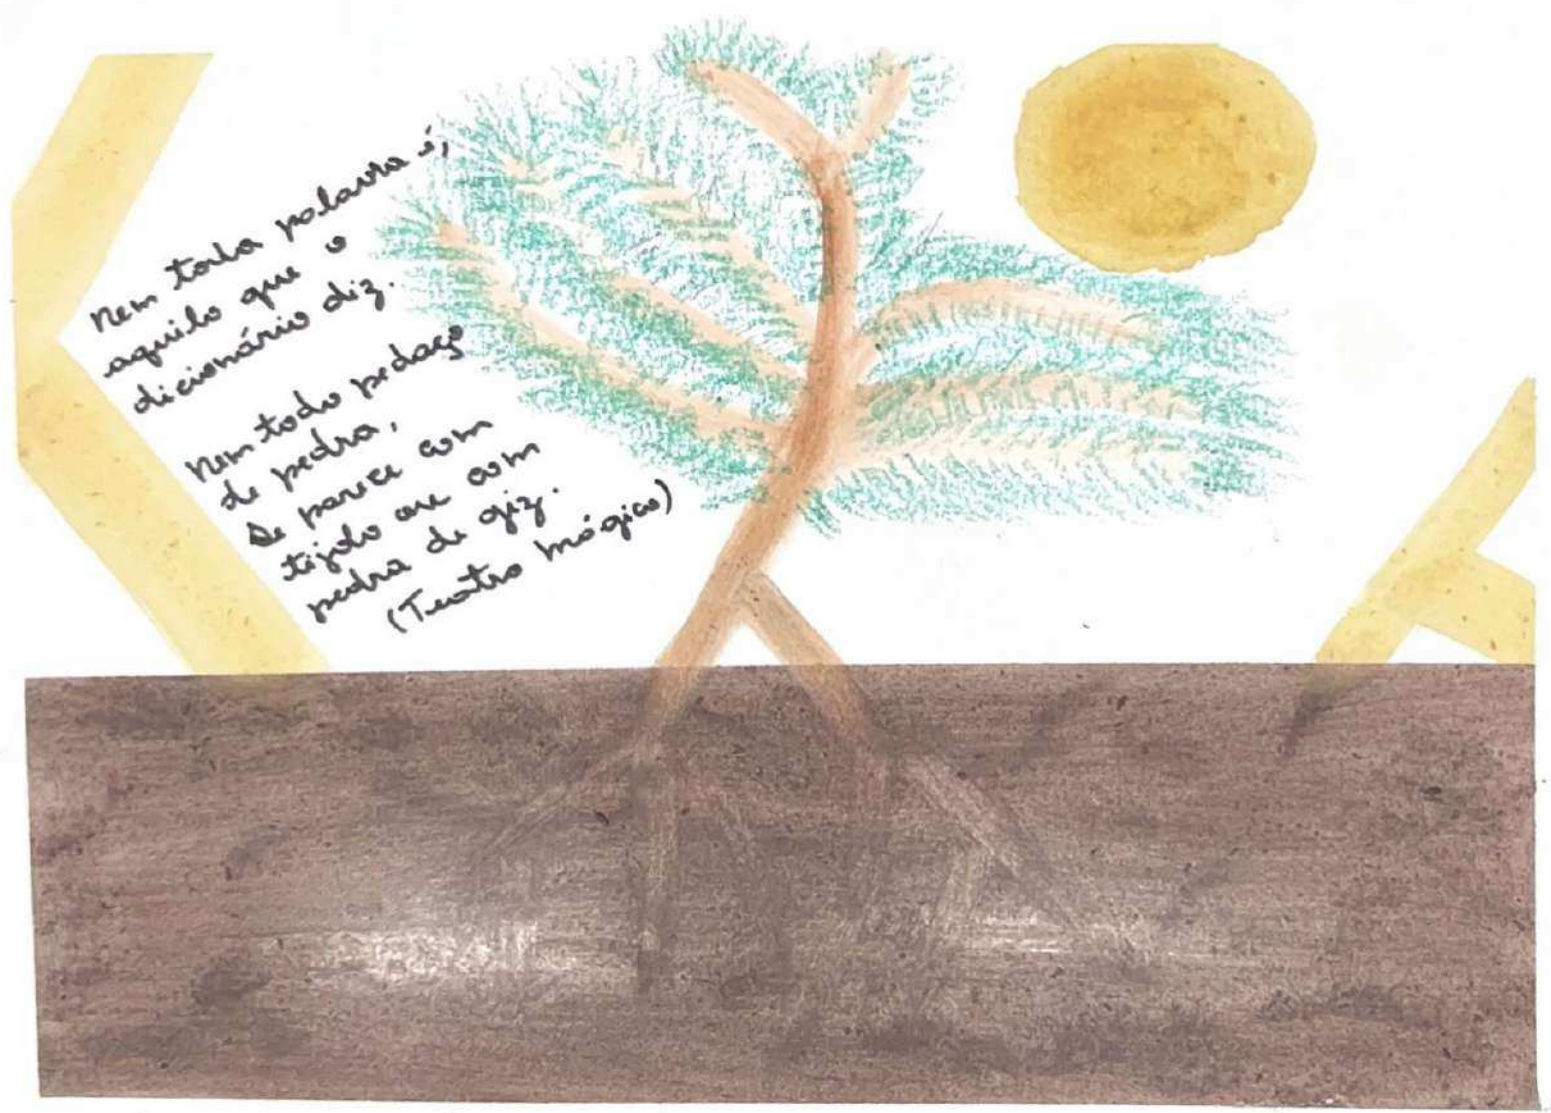 Nem toda palavra é,
aquilo que o
dicionário diz.
Nem todo pedaço
de pedra,
Se parece com
tijolo ou com
pedra de giz.
(Teatro mágico)